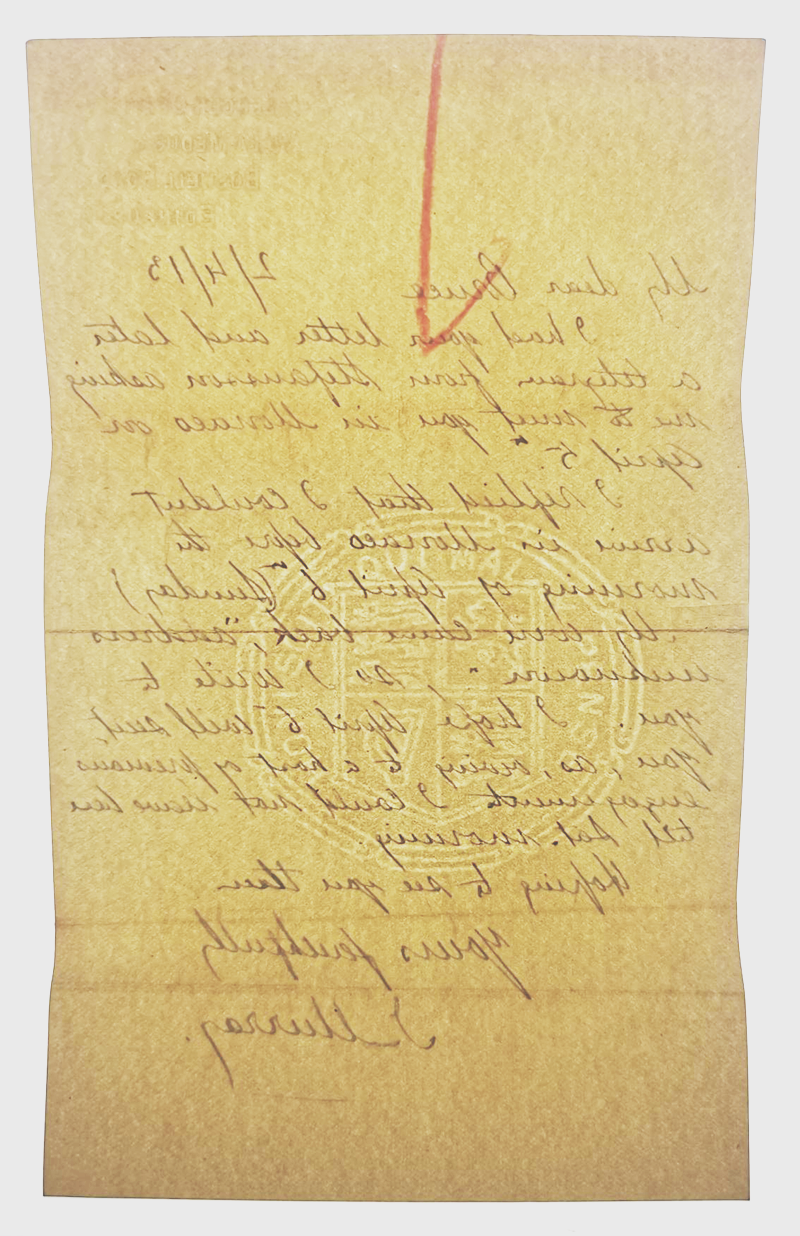 BOSWELL ROAD
2/4/13
My dear Bruce
I had your letter and later
a telegram from Stefansson asking
me to meet you in Monaco on
April 5th
I replied that I couldnt
arrive in Monaco before the
morning of April 6th (Sunday)
My wire came back, "address
unknown", so I write to
you. I hope April 6th will suit
you, as, owing to a host of previous
engagements I could not leave here
till Sat. morning.
Hoping to see you then
Yours faithfully
J Murray.